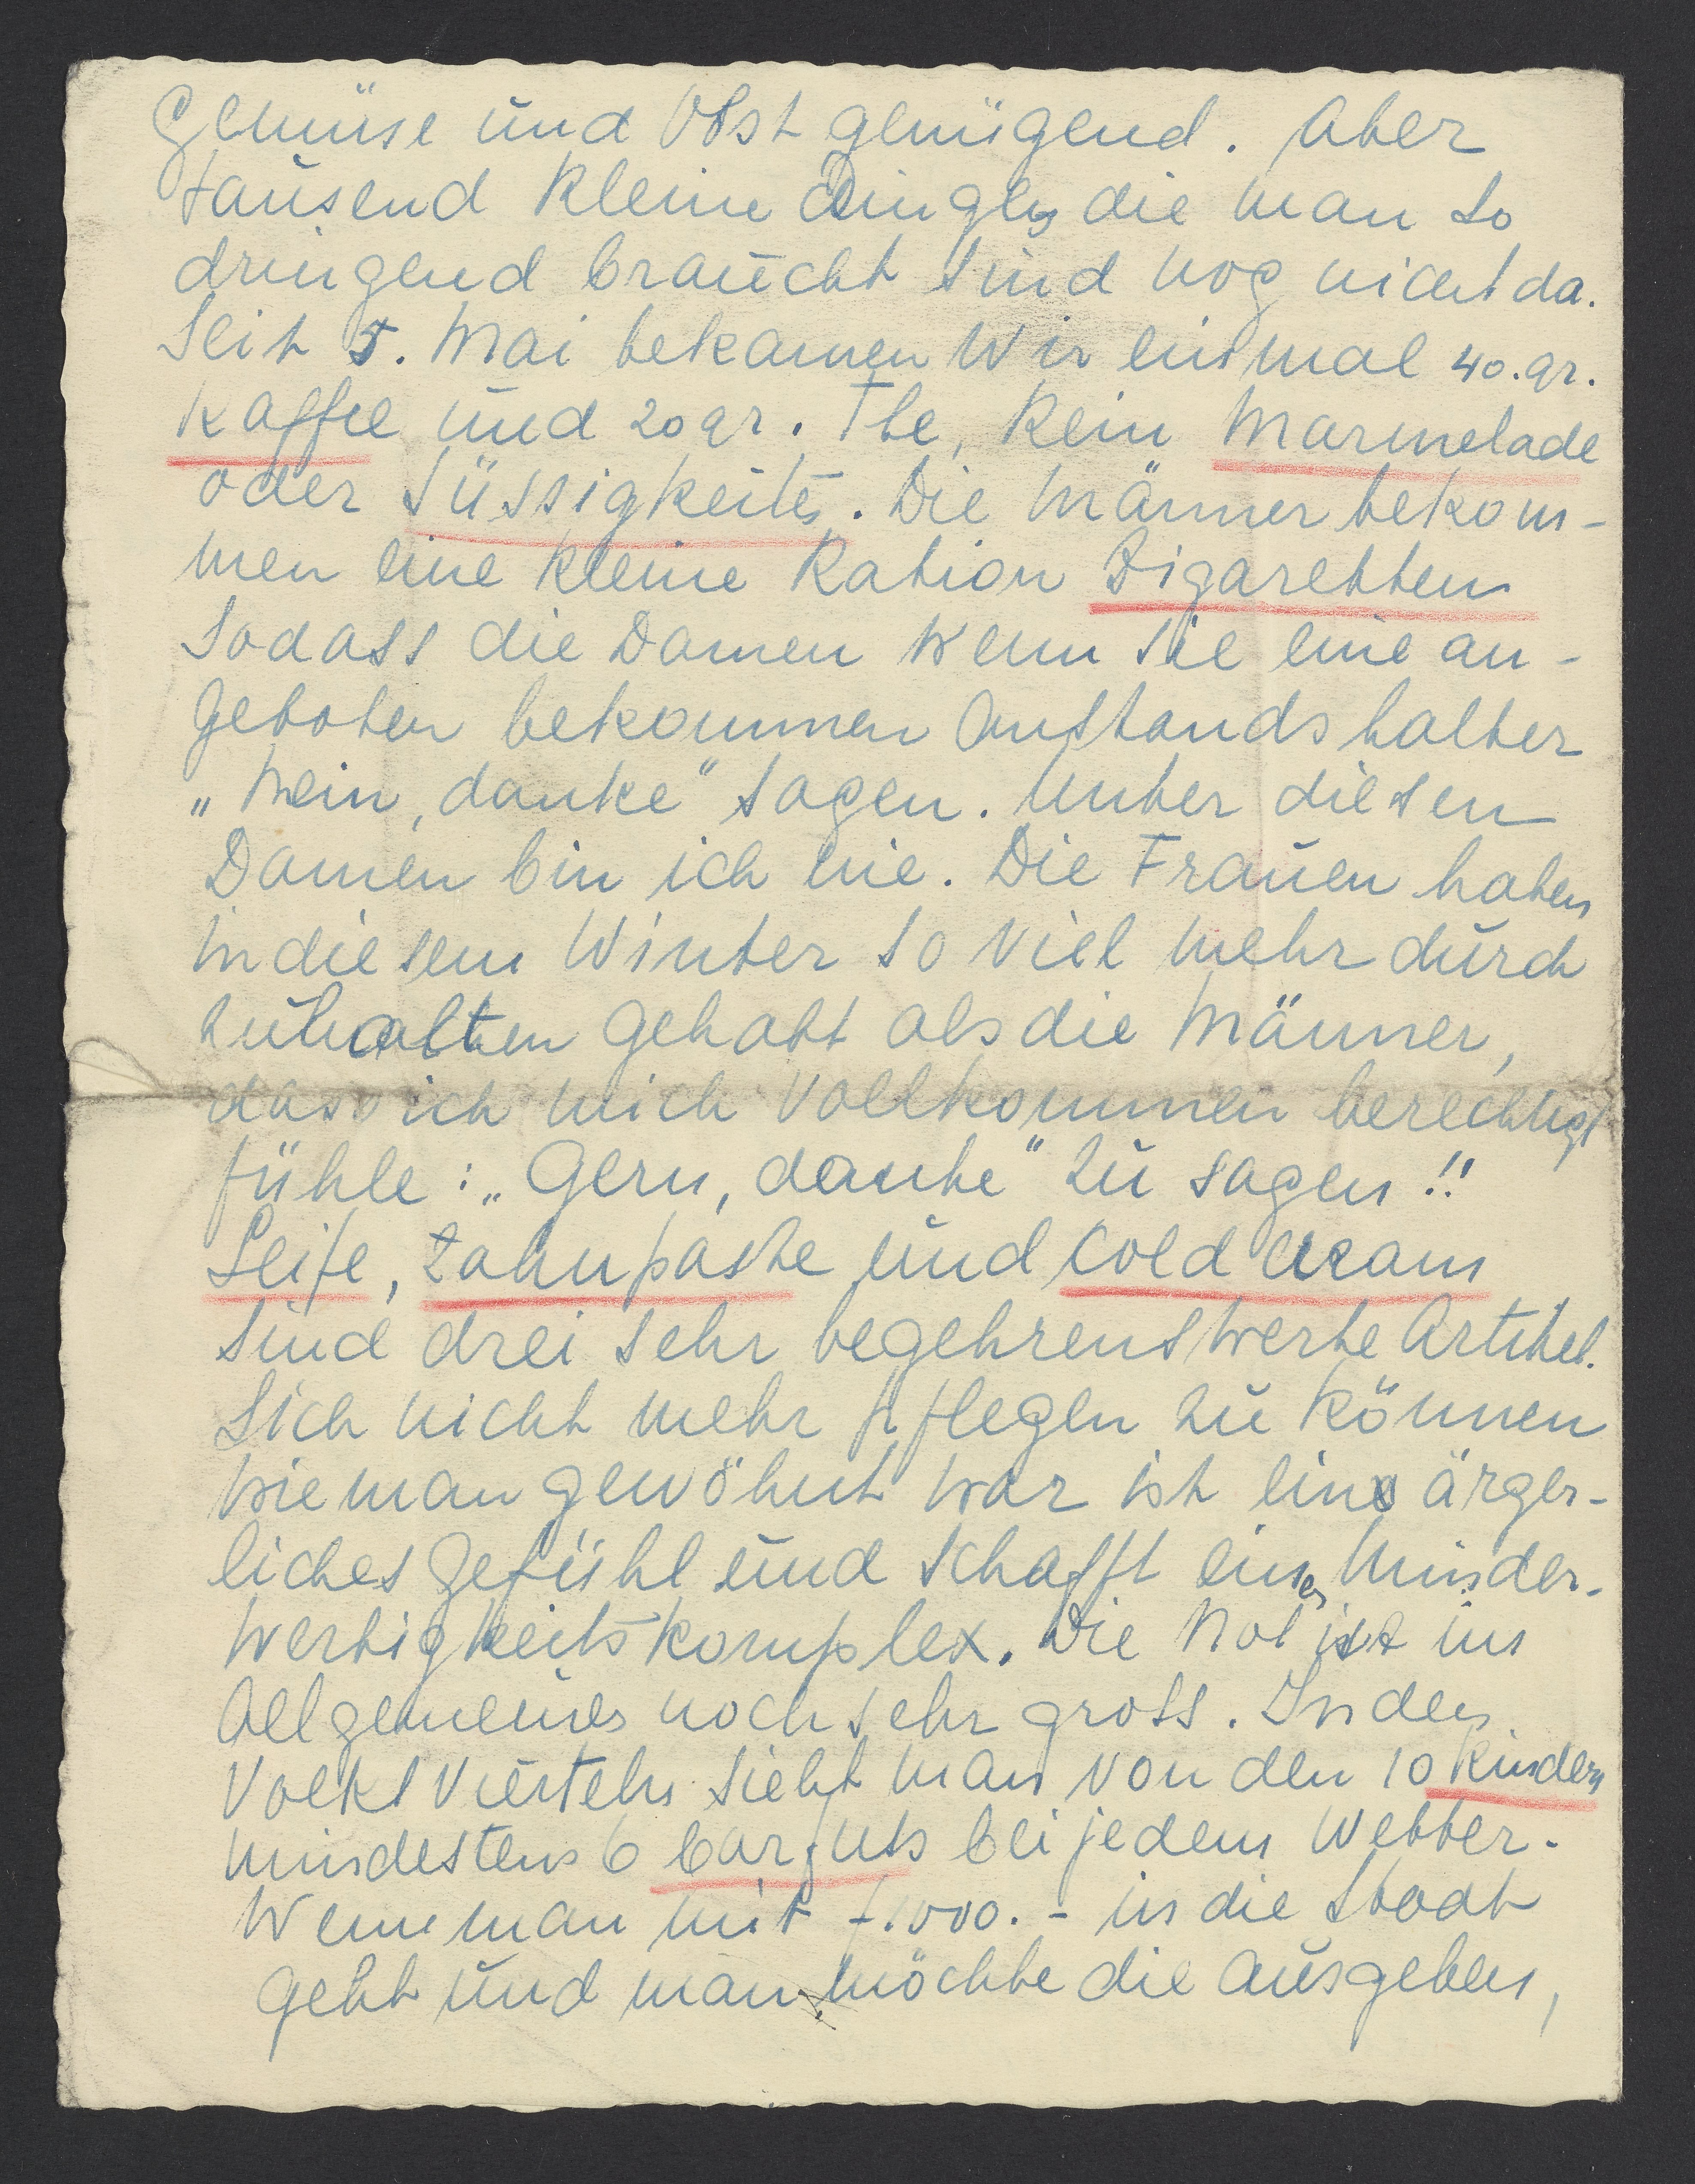 Gemüse und Obst genügend. Aber
tausend kleine Dingen die man so
dringend braucht sind nog nicht da.
Seit 5. Mai bekamen Wir einmal 40.gr.
Kaffee und 20 gr. Thee, kein Marmelade
oder Süssigkeiten. Die Männer bekom-
men eine kleine Ration Zigaretten
sodass die Damen wenn sie eine an-
geboten bekommen anstandshalber
„Nein, danke" sagen. Unter diesen
Damen bin ich nie. Die Frauen haben
in diesem Winter so viel mehr durch
zuhalten gehabt als die Männer,
dass ich mich vollkommen berechtigt
fühle: „Gern, danke" zu sagen!!
Seife, Zahnpaste und Cold cream
sind drei sehr begehrenswerte Artikel.
Sich nicht mehr pflegen zu können
wie man gewöhnt war ist ein ärger-
liches Gefühl und schafft einen Minder-
wertigkeitskomplex. Die Not ist im
Allgemeinen noch sehr gross. In den
Volksvierteln sieht man von den 10 Kindern
mindestens 6 barfuss bei jedem Wetter.
Wenn man mit f.1000.- in die Stadt
geht und man möchte die ausgeben,